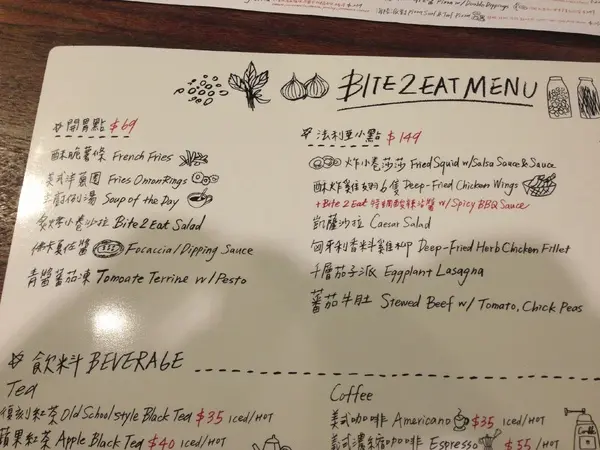 BITE2EAT MENU
開胃點 $69
酥脆薯條 French Fries
美式洋蔥圈 Fries OnionRings
主廚例湯 Soup of the Day
Bite2Eat Salad
佛卡夏佐醬 Focaccia/Dipping Sauce
青醬蕃茄凍 Tomoate Terrine w/Pesto
法利亞小點 $149
炸小卷莎莎 Fried Squid w/Salsa Sauce & Sauce
酥炸雞佐翅6隻 Deep-Fried Chicken Wings
+Bite2Eat 特調酸辣沾醬 w/Spicy BBQ Sauce
凱薩沙拉 Caesar Salad
匈牙利香料雞柳 Deep-Fried Herb Chicken Fillet
千層茄子派 Eggplant Lasagna
蕃茄牛肚 Stewed Beef w/ Tomato, Chick Peas
飲料 BEVERAGE
Tea
復刻紅茶 Old School style Black Tea $35 Iced/HOT
蘋果紅茶 Apple Black Tea $40 Iced/HOT
Coffee
美式咖啡 Americano $35 Iced/HOT
義式濃縮咖啡 Espresso $35 /HOT